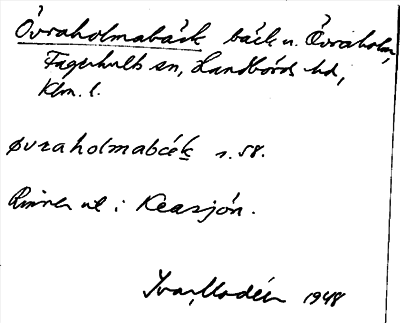 Övraholmabäck bäck n. Övraholm,
Fagerhults sn, Handbörds hd,
Klm. l.
øvraholmabćek s. 58.
Rinner ut i Keasjön.
Ivar Modéer 1948